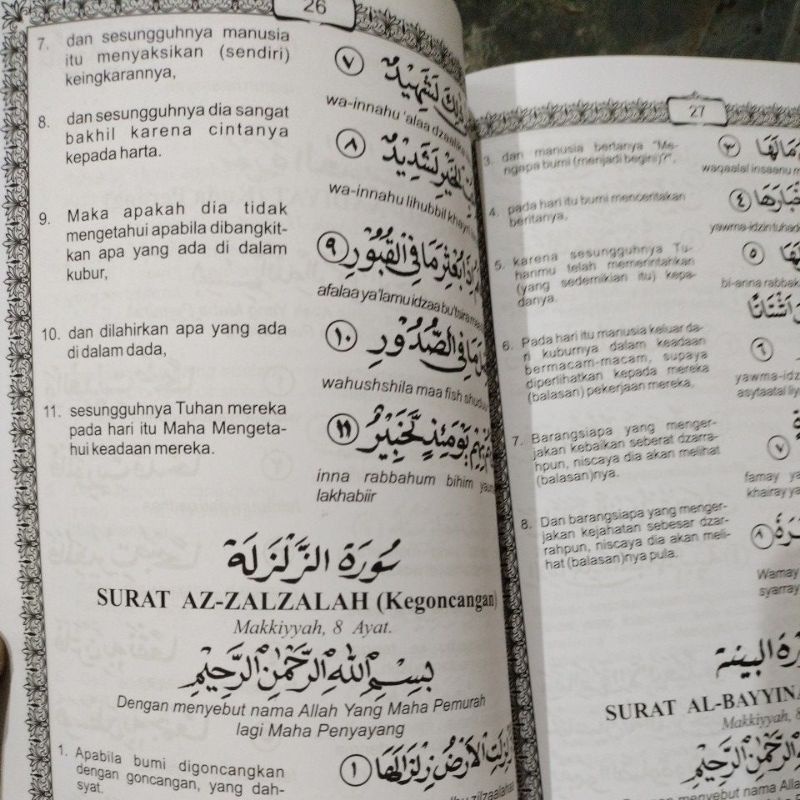 26
7. dan sesungguhnya manusia
itu menyaksikan (sendiri)
keingkarannya,
لَشَهِيْدٌ ٧
wa-innahu 'alaa
8. dan sesungguhnya dia sangat
bakhil karena cintanya
kepada harta.
الْخَيْرِ لَشَدِيْدٌ ٨
wa-innahu lihubbil
9. Maka apakah dia tidak
mengetahui apabila dibangkit-
kan apa yang ada di dalam
kubur,
بُعْثِرَ مَا فِى الْقُبُوْرِ ٩
afalaa ya'lamu idzaa bu'tsira
10. dan dilahirkan apa yang ada
di dalam dada,
مَا فِى الصُّدُوْرِ ١٠
wahushshila maa fish
11. sesungguhnya Tuhan mereka
pada hari itu Maha Mengeta-
hui keadaan mereka.
بِهِمْ يَوْمَئِذٍ لَّخَبِيْرٌ ١١
inna rabbahum bihim
lakhabiir
سُوْرَةُ الزَّلْزَلَةِ
SURAT AZ-ZALZALAH (Kegoncangan)
Makkiyyah, 8 Ayat.
بِسْمِ اللهِ الرَّحْمٰنِ الرَّحِيْمِ
Dengan menyebut nama Allah Yang Maha Pemurah
lagi Maha Penyayang
1. Apabila bumi digoncangkan
dengan goncangan, yang dah-
syat.
الْاَرْضُ زِلْزَالَهَا ١
27
3. dan manusia bertanya "Me-
ngapa bumi (menjadi begini)?",
مَالَهَا ٣
waqaalal insaanu
4. pada hari itu bumi menceritakan
beritanya,
٤
yawma-idzin
5. karena sesungguhnya Tu-
hanmu telah memerintahkan
(yang sedemikian itu) kepa-
danya.
٥
bi-anna
اَشْتَاتًا
6. Pada hari itu manusia keluar da-
ri kuburnya dalam keadaan
bermacam-macam, supaya
diperlihatkan kepada mereka
(balasan) pekerjaan mereka,
٦
yawma-idz
asytaatal
7. Barangsiapa yang menger-
jakan kebaikan seberat dzarra-
hpun, niscaya dia akan melihat
(balasan)nya.
٧
famay
khairay
8. Dan barangsiapa yang menger-
jakan kejahatan sebesar dzar-
rahpun, niscaya dia akan meli-
hat (balasan)nya pula.
٨
Wamay
syarray
الْبَيِّنَةِ
SURAT AL-BAYYINA
Makkiyyah, 8
الرَّحْمٰنِ الرَّحِيْمِ